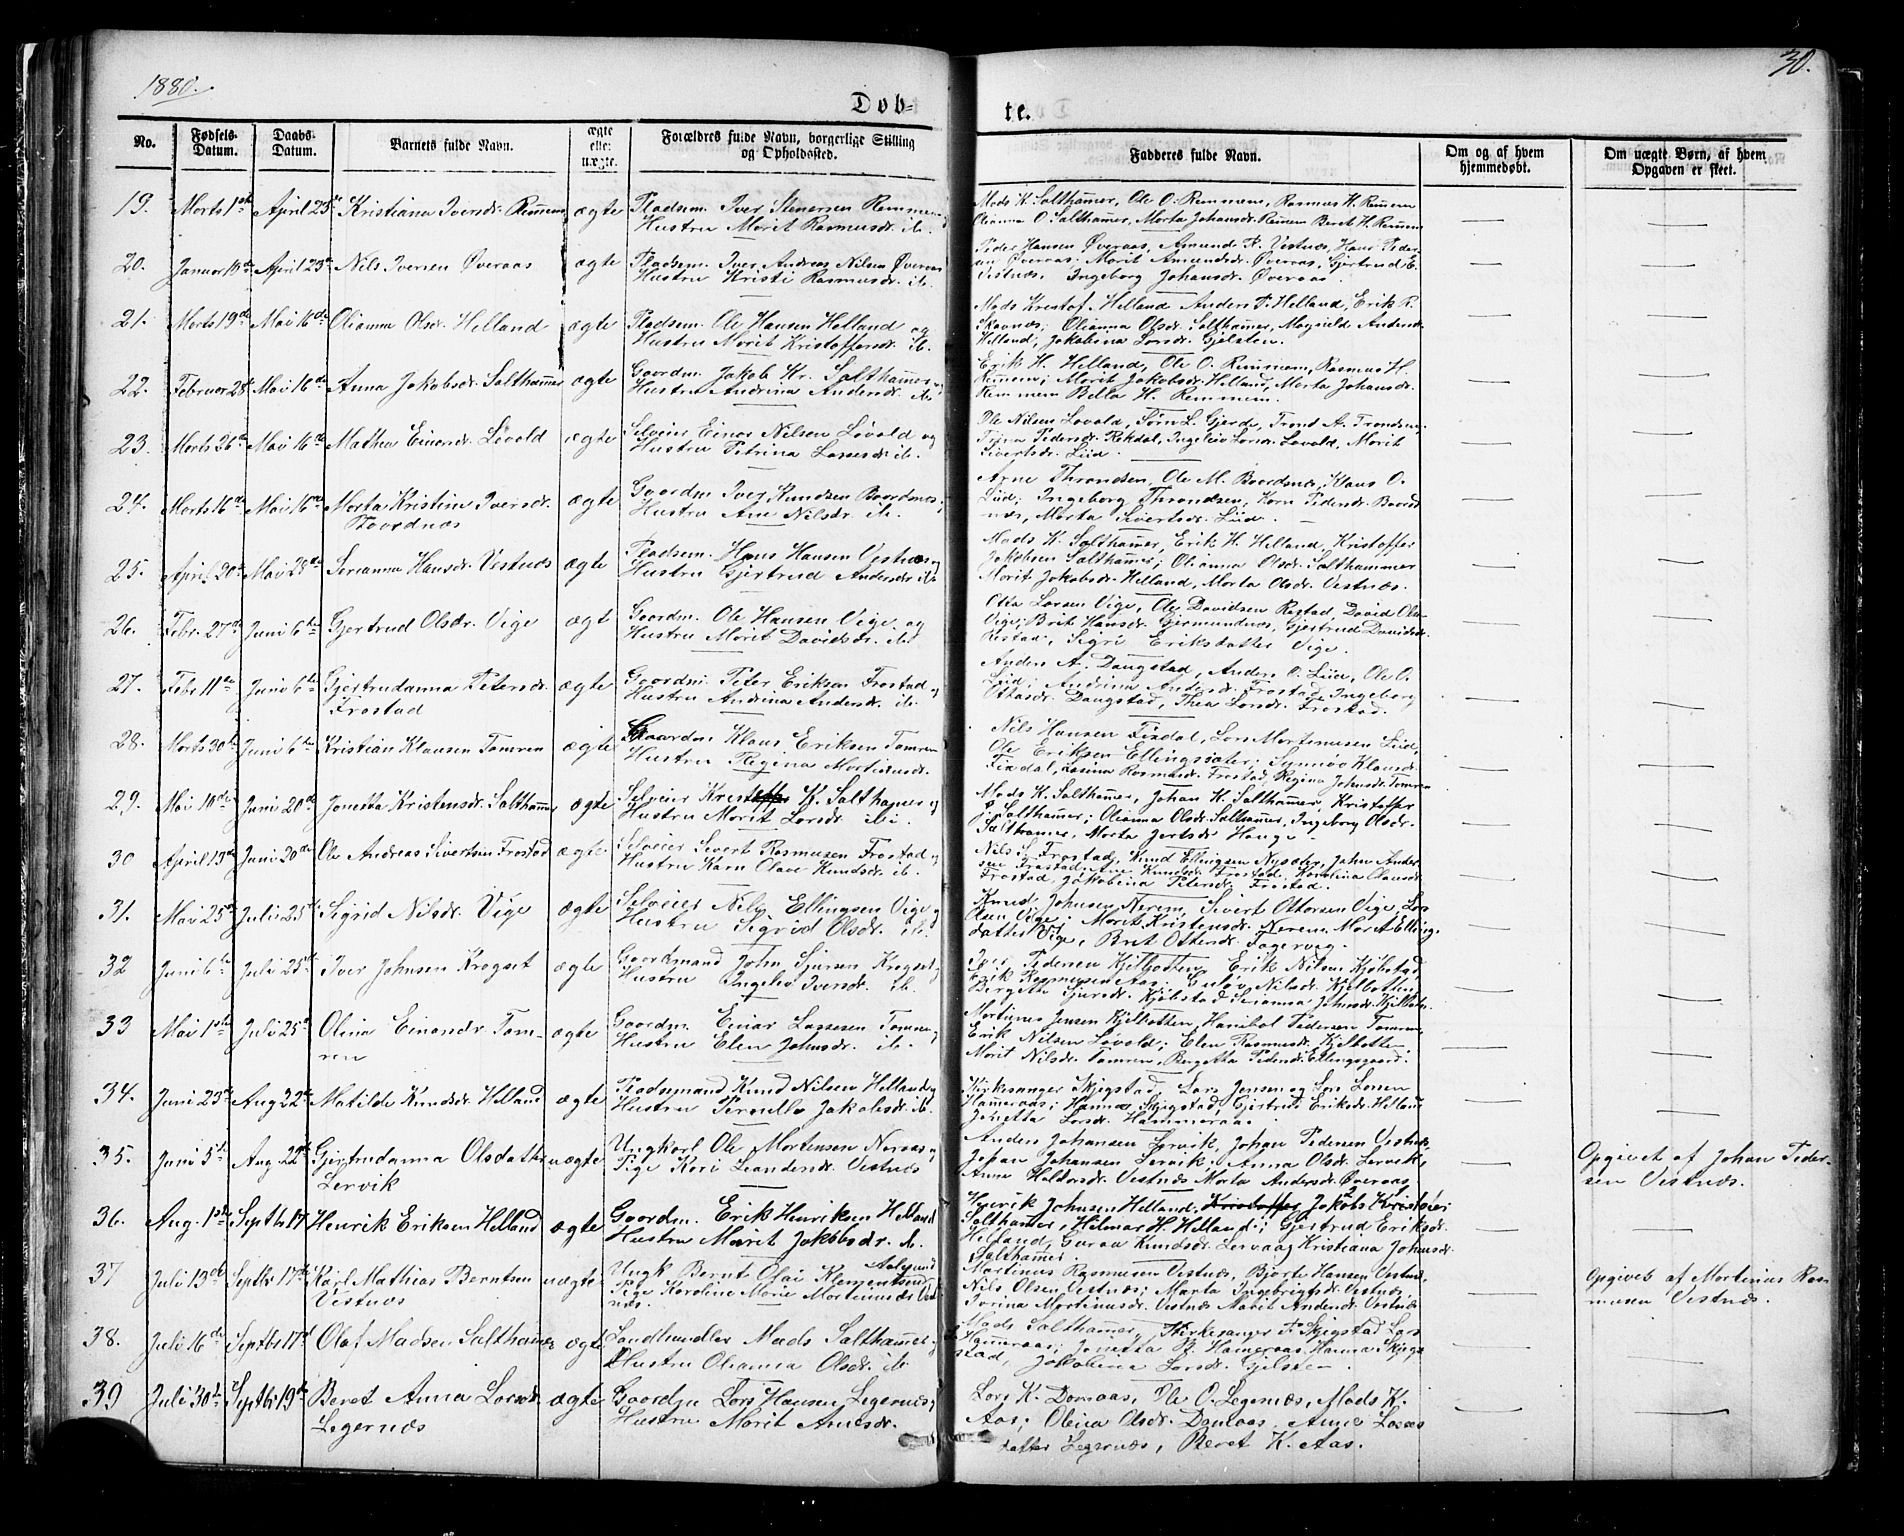 1880.
30.
Døb=
te.
No.
Fødsels-Datum.
Daabs-Datum.
Barnets fulde Navn.
ægte eller uægte.
Forældres fulde Navn, borgerlige Stilling og Opholdssted.
Fadderes fulde Navn.
Om og af hvem hjemmedøbt.
Om uægte Børn, af hvem Opgaven er skeet.
19. Marts 1ste April 25de Kristiana Iversdr. Remmem ægte Pladsm. Iver Stenersen Remmem
Hustru Marit Rasmusdr. ib.
Mads K. Salthamer, Ole O. Remmem, Rasmus H. Remem
Olianna O. Salthamer, Marta Johansdr. Remem Beret H. Remem
20. Januar April 25de Nils Iversen Øveraas ægte Pladsm. Iver Andreas Nilsen Øveraas
Hustru Kristi Rasmusdr. ib.
Peder Hansen Øveraas, Amund P. Vestnæs, Hans Peder-
sen Øveraas; Marit Amundsdr. Øveraas, Gjertrud E.
Vestnæs, Ingeborg Johansdr. Øveraas.
21. Marts 19de Mai 16de Olianna Olsdr. Helland ægte Pladsm. Ole Hansen Helland og
Hustru Marit Kristoffersdr. ib.
Mads Kristof. Helland Anders P. Helland, Erik R.
Skavnæs; Olianna Olsdr. Salthamer, Magnild Andersdr.
Helland, Jakobina Larsdr. Gjelsten.
22. Februar 28 Mai 16de Anna Jakobsdr. Salthamer ægte Gaardm. Jakob Kr. Salthamer og
Hustru Andrina Andersdr. ib.
Erik H. Helland, Ole O. Remmem, Rasmus H.
Remem; Marit Jakobsdr. Helland, Marta Johansdr.
Remmem Bella H. Remmem.
23. Marts 26de Mai 16de Mathea Einersdr. Løvold ægte Selveier Einar Nilsen Løvold og
Hustru Petrina Lassesdr. ib.
Ole Nilsen Løvold, Søren L. Gjerde, Trond A. Trondsen,
Trina Pedersdr. Rekdal, Ingeleiv Larsdr. Løvold, Marit
Sivertsdr. Liid.
24. Marts 16de Mai 16de Marta Kristine Iversdr.
Baardnæs
ægte Gaardm. Iver Knudsen Baardnæs;
Hustru Ane Nilsdr. ib.
Arne Throndsen, Ole M. Baardsnæs, Klaus O.
Liid; Ingeborg Throndsen, Karn Pedersdr. Baard
næs, Marta Sivertsdr. Liid.
25. April 20de Mai 28de Serianna Hansdr. Vestnæs ægte Pladsm. Hans Hansen Vestnæs og
Hustru Gjertrud Andersdr. ib
Mads K. Salthamer, Erik H. Helland, Kristoffer
Jakobsen Salthamer; Olianna Olsdr. Salthammer
Marit Jakobsdr. Helland, Marta Olsdr. Vestnæs.
26. Febr. 27de Juni 6te Gjertrud Olsdr. Vige ægt Gaardm. Ole Hansen Vige og
Hustru Marit Davidsdr. ib.
Otta Larsen Vige, Ole Davidsen Restad, David Olsen
Vige; Brit Hansdr. Gjermundnæs, Gjertrud Davidsdr.
Restad, Sigri Eriksdatter Vige.
27. Febr 11te Juni 6te Gjertrudanna Petersdr.
Frostad
ægte Gaardm. Peter Eriksen Frostad og
Hustru Andrina Andersdr. ib.
Anders A. Daugstad, Anders O. Liid, Ole O.
Liid; Andrina Andersdr. Frostad, Ingeborg
Ottosdr. Daugstad, Thea Larsdr. Frostad.
28. Marts 30te Juni 6te Kristian Klausen Tomren ægte Gaardm. Klaus Eriksen Tomren
Hustru Regina Martinusdr.
Nils Hansen Fixdal, Lars Martinusen Liid,
Ole Eriksen Ellingsæter; Synnøv Klausdr.
Fixdal, Lasina Rasmusdr. Frostad, Regina Johnsdr. Tomren
29. Mai 10de Juni 20de Jonetta Kristensdr. Salthamer ægte Selveier Krest K. Salthamer og
Hustru Marit Larsdr. ib.
Mads K. Salthamer, Johan K. Salthamer, Kristoffer
J. Salthamer; Olianna Olsdr. Salthamer, Ingeborg Olsdr.
Salthamer, Marta Jertsdr Hauge.
30 April 13de Juni 20de Ole Andreas Sivertsen Frostad ægte Selveier Sivert Rasmusen Frostad og
Hustru Karn Olave Knudsdr. ib.
Nils S. Frostad, Knud Ellingsen Nysæter, John Ander
sen Frostad; Ane Knudsdr. Frostad, Karolina Olausdr
Frostad, Jakobina Petersdr. Frostad.
31. Mai 25de Juli 25de Sigrid Nilsdr. Vige ægte Selveier Nils Ellingsen Vige og
Hustru Sigrid Olsdr. ib.
Knud Johnsen Nerem, Sivert Ottosen Vige, Lars
Olsen Vige; Marit Kristensdr. Nerem, Marit Elling.
datter Vige, Brit Ottersdr. Fagerveg.
32 Juni 6te Juli 25de Iver Johnsen Krogset ægte Gaardmand John Sjursen Krogset og
Hustru Ingeleiv Iversdr. ib.
Iver Pedersen Kjelbotten, Erik Nilsen Kjøbstad,
Erik Rasmusen Aas; Guløv Nilsdr. Kjelbotten,
Bergette Sjursdr. Kjøbstad Serianna Johnsdr. Kjelbotn.
33 Mai 1ste Juli 25de Olina Einarsdr Tom-
ren
ægte Gaardm. Einar Lassesen Tomren og
Hustru Elen Johnsdr. ib.
Martinus Jensen Kjelbotten, Hanibal Pedersen Tomren,
Erik Nilsen Løvold; Elen Rasmusdr. Kjelbotten
Marit Nilsdr. Tomren, Bergetha Pedersdr. Ellingsgaard.
34. Juni 23de Aug 22de Matilde Knudsdr. Helland ægte Pladsmand Knud Nilsen Helland og
Hustru Pernille Jakobsdr. ib.
Kirkesanger Skjegstad, Lars Jensen og Lars Larsen
Hameraas; Hanna Skjegstad, Gjertrud Eriksdr. Helland
Jonetta Larsdr. Hammeraas.
35. Juni 5te Aug 22de Gjertrudanna Olsdatter
Lervik
uægte Ungkarl Ole Mortensen Neraas og
Pige Kari Leandersdr. Vestnæs
Anders Johansen Lervik, Johan Pedersen Vestnæs,
Johan Johansen Lervik; Anna Olsdr. Lervik,
Anna Haldorsdr. Vestnæs Marta Andersdr. Øveraas
Opgivet af Johan Peder-
sen Vestnæs.
36. Aug. 1ste Septbr 17 Henrik Eriksen Helland ægte Gaardm. Erik Henriksen Helland
Hustru Marit Jakobsdr. ib.
Henrik Johnsen Helland, Kristoffer Jakobs Kristofer
Salthamer, Hilmar H. Helland; Gjertrud Eriksdr.
Helland, Guraa Knudsdr. Lervaag Kristiana Johnsdr.
Salthamer
37 Juli 13de Septbr 17de Karl Mathias Berntsen
Vestnæs
uægte Ungk Bernt Olai Klementsen Aalesund
Pige Kardine Marie Martinusdr Vest
næs.
Martinus Rasmusen Vestnæs, Bjørte Hansen Vestnæs,
Nils Olsen Vestnæs; Marta Ingebrigtsdr. Vestnæs,
Iverina Martinusdr. Vestnæs Marit Andersdr. Vestnæs
Opgivet af Martinus Ras
musen Vestnæs.
38. Juli 16de Septbr 17d Olaf Madsen Salthamer ægte Landhandler Mads Salthamer og
Hustru Olianna Olsdr. ib
Mads Salthamer, Kirkesanger Skjegstad Lars
Hameraas; Jonetta R. Hameraas, Hanna Skjeg
stad, Jakobina Larsdr. Gjelsten.
39 Juli 30te Septbr 19de Beret Anna Larsdr.
Legernæs
ægte Gaardm Lars Hansen Legernæs og
Hustru Marit Amesdr.
Lars K. Domaas, Ole O. Legernæs, Mads K.
Aas; Oleina Olsdr. Domaas, Anne Lars
datter Legernæs, Beret K. Aas.